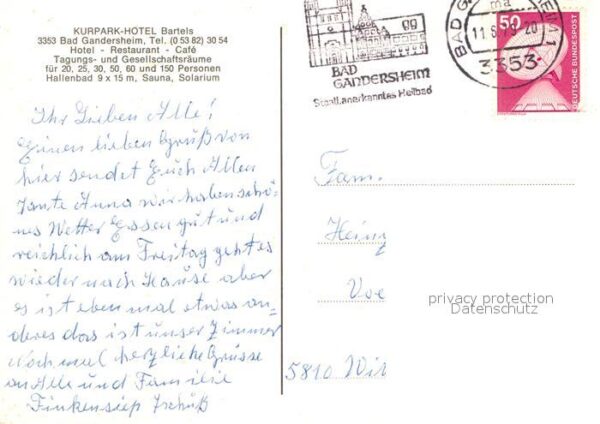 KURPARK-HOTEL Bartels
3353 Bad Gandersheim, Tel. (0 53 82) 30 54
Hotel - Restaurant - Café
Tagungs- und Gesellschaftsräume
für 20, 25, 30, 50, 60 und 150 Personen
Hallenbad 9 x 15 m, Sauna, Solarium
Ihr Lieben Alle!
Einen lieben Gruß von
hier sendet Euch Allen
Tante Anna wir haben schö-
nes Wetter Essen gut und
reichlich am Freitag geht es
wieder nach Hause aber
es ist eben mal etwas an-
deres das ist unser Zimmer
Noch mal herzliche Grüsse
an Alle und Familie
Finkensiep Tschüß
BAD
GANDERSHEIM
Staatl. anerkanntes Heilbad
BAD G
3353
50
DEUTSCHE BUNDESPOST
Fam.
Heinz
Voe
privacy protection
Datenschutz
5810 Wit